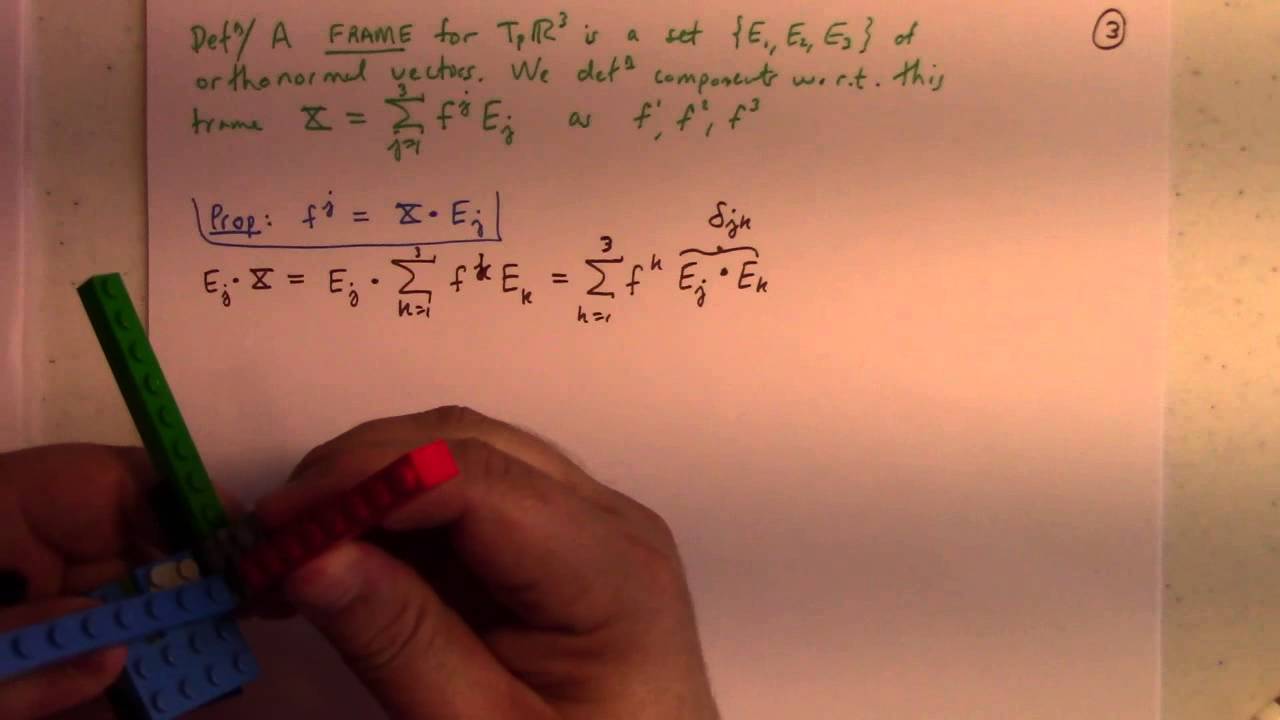 Defⁿ/ A FRAME for TₚℝÂ³ is a set {E₁, E₂, E₃} of
orthonormal vectors. We defⁿ components w.r.t. this
frame X = ∑_{j=1}^{3} f^j E_j as f¹, f², f³
Prop: f^j = X · E_j
E_j · X = E_j · ∑_{k=1}^{3} f^k E_k = ∑_{k=1}^{3} f^k E_j · E_k
δ_{jk}
③